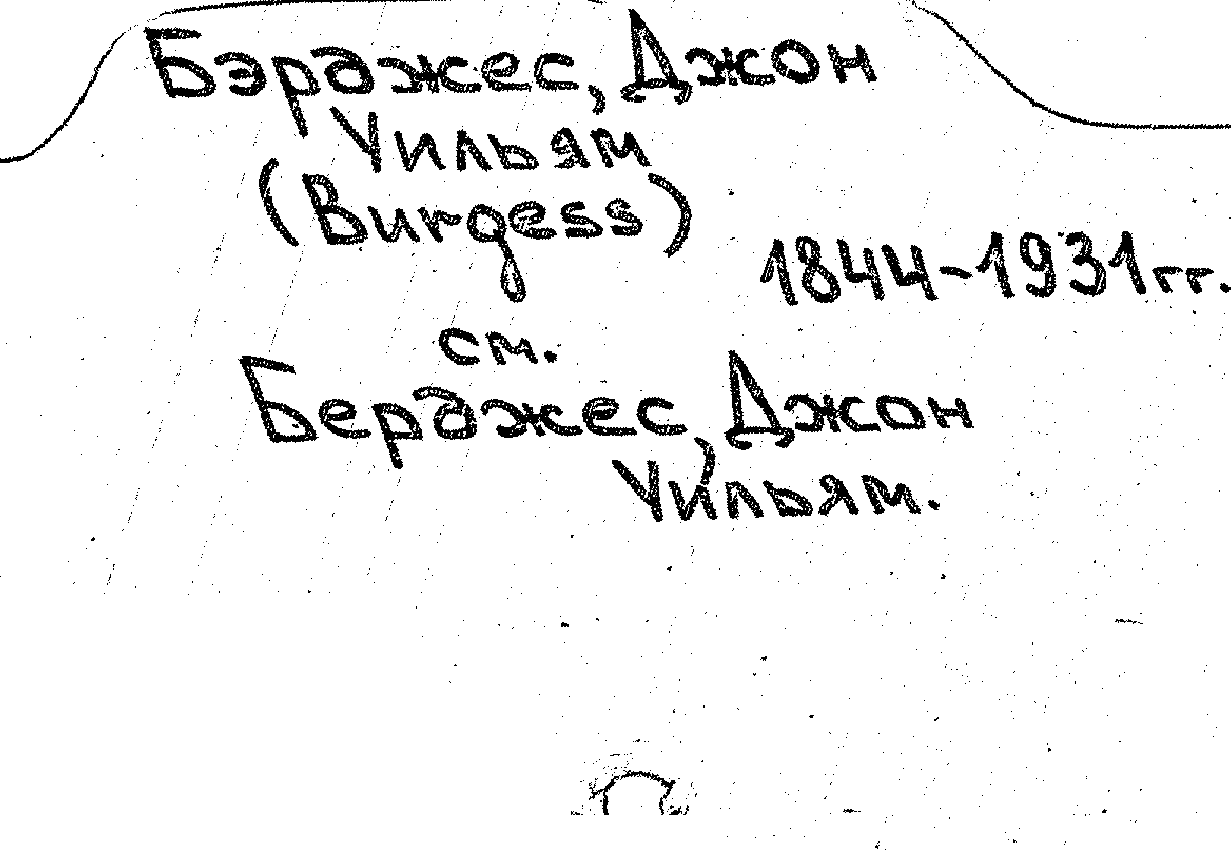 Бэрджес, Джон
Уильям
(Burgess)
1844-1931гг.
см.
Берджес, Джон
Уильям.